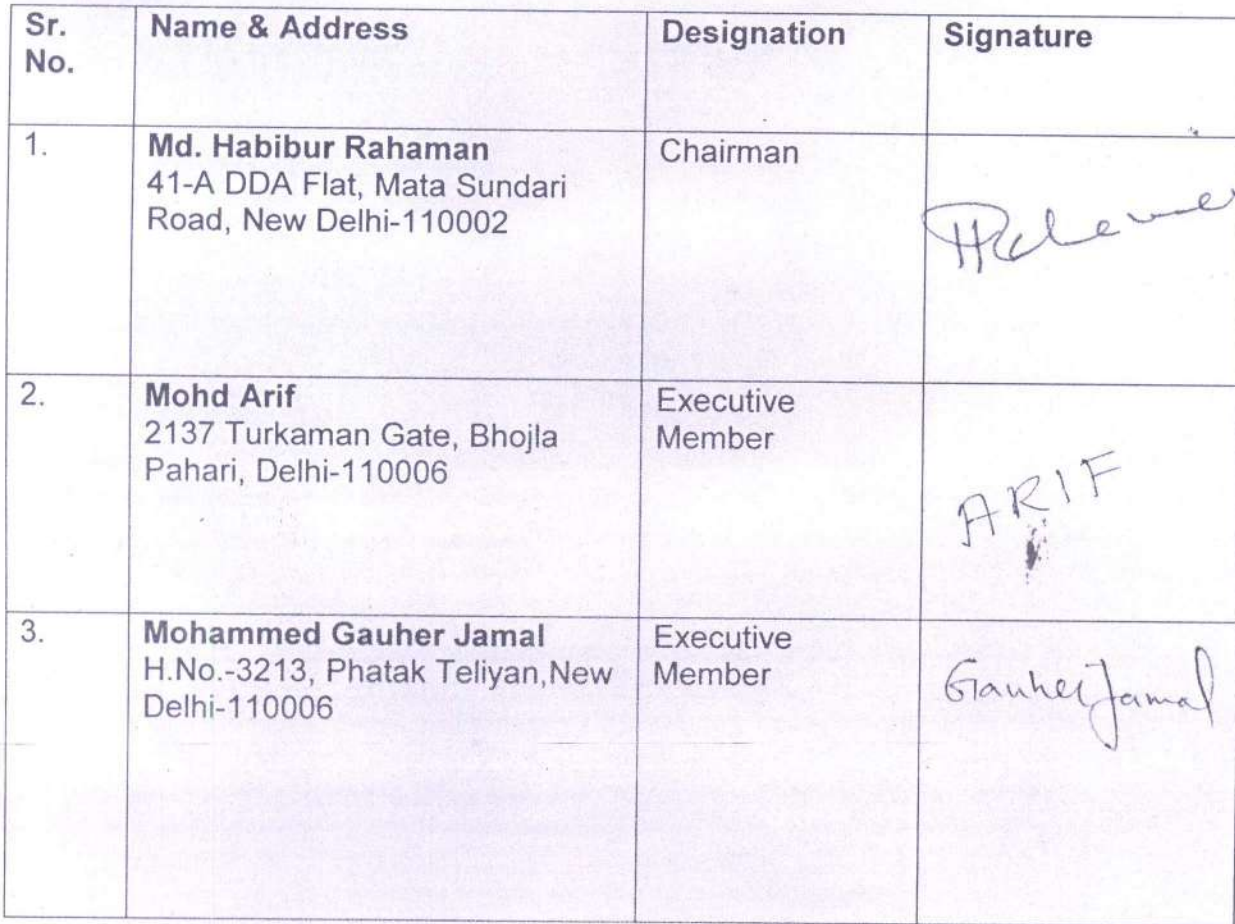 Sr. No.
Name & Address
Designation
Signature
1.
Md. Habibur Rahaman
41-A DDA Flat, Mata Sundari
Road, New Delhi-110002
Chairman
2.
Mohd Arif
2137 Turkaman Gate, Bhojla
Pahari, Delhi-110006
Executive
Member
ARIF
3.
Mohammed Gauher Jamal
H.No.-3213, Phatak Teliyan,New
Delhi-110006
Executive
Member
Gauher Jamal